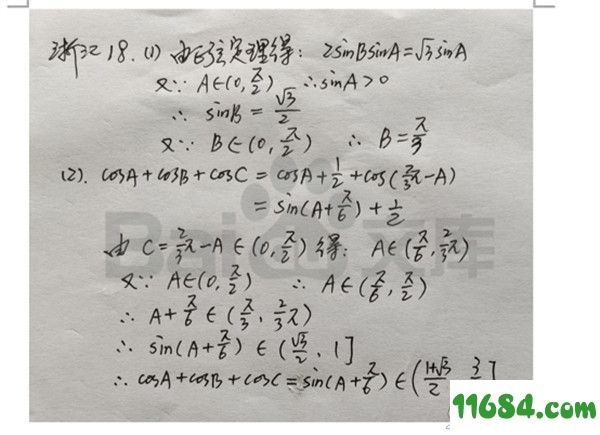 浙江 18. (1) 由正弦定理得: 2sinBsinA=√3 sinA
又∵ A∈(0, π/2) ∴ sinA>0
∴ sinB = √3/2
又∵ B∈(0, π/2) ∴ B=π/3
(2). cosA+cosB+cosC = cosA+1/2+cos(2/3π-A)
= sin(A+π/6)+1/2
由 C=2/3π-A∈(0, π/2) 得: A∈(π/6, 2/3π)
又∵ A∈(0, π/2) ∴ A∈(π/6, π/2)
∴ A+π/6 ∈ (π/3, 2/3π)
∴ sin(A+π/6) ∈ (√3/2, 1]
∴ cosA+cosB+cosC=sin(A+π/6)∈(1+√3/2, 3
Bai 文库
11684.com